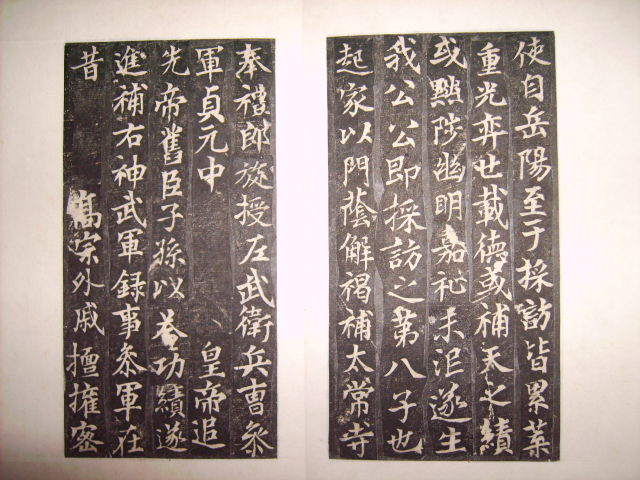 使自岳陽至于採訪皆累葉
重光弈世載德或補天之績
或黜陟幽明嘉祉未泯遂生
我公公即採訪之第八子也
起家以門蔭解褐補太常寺
奉禮郎旋授左武衛兵曹叅
軍貞元中 皇帝追
先帝舊臣子孫以 功績遂
進補右神武軍録事叅軍在
昔 髙宗外戚擅權密